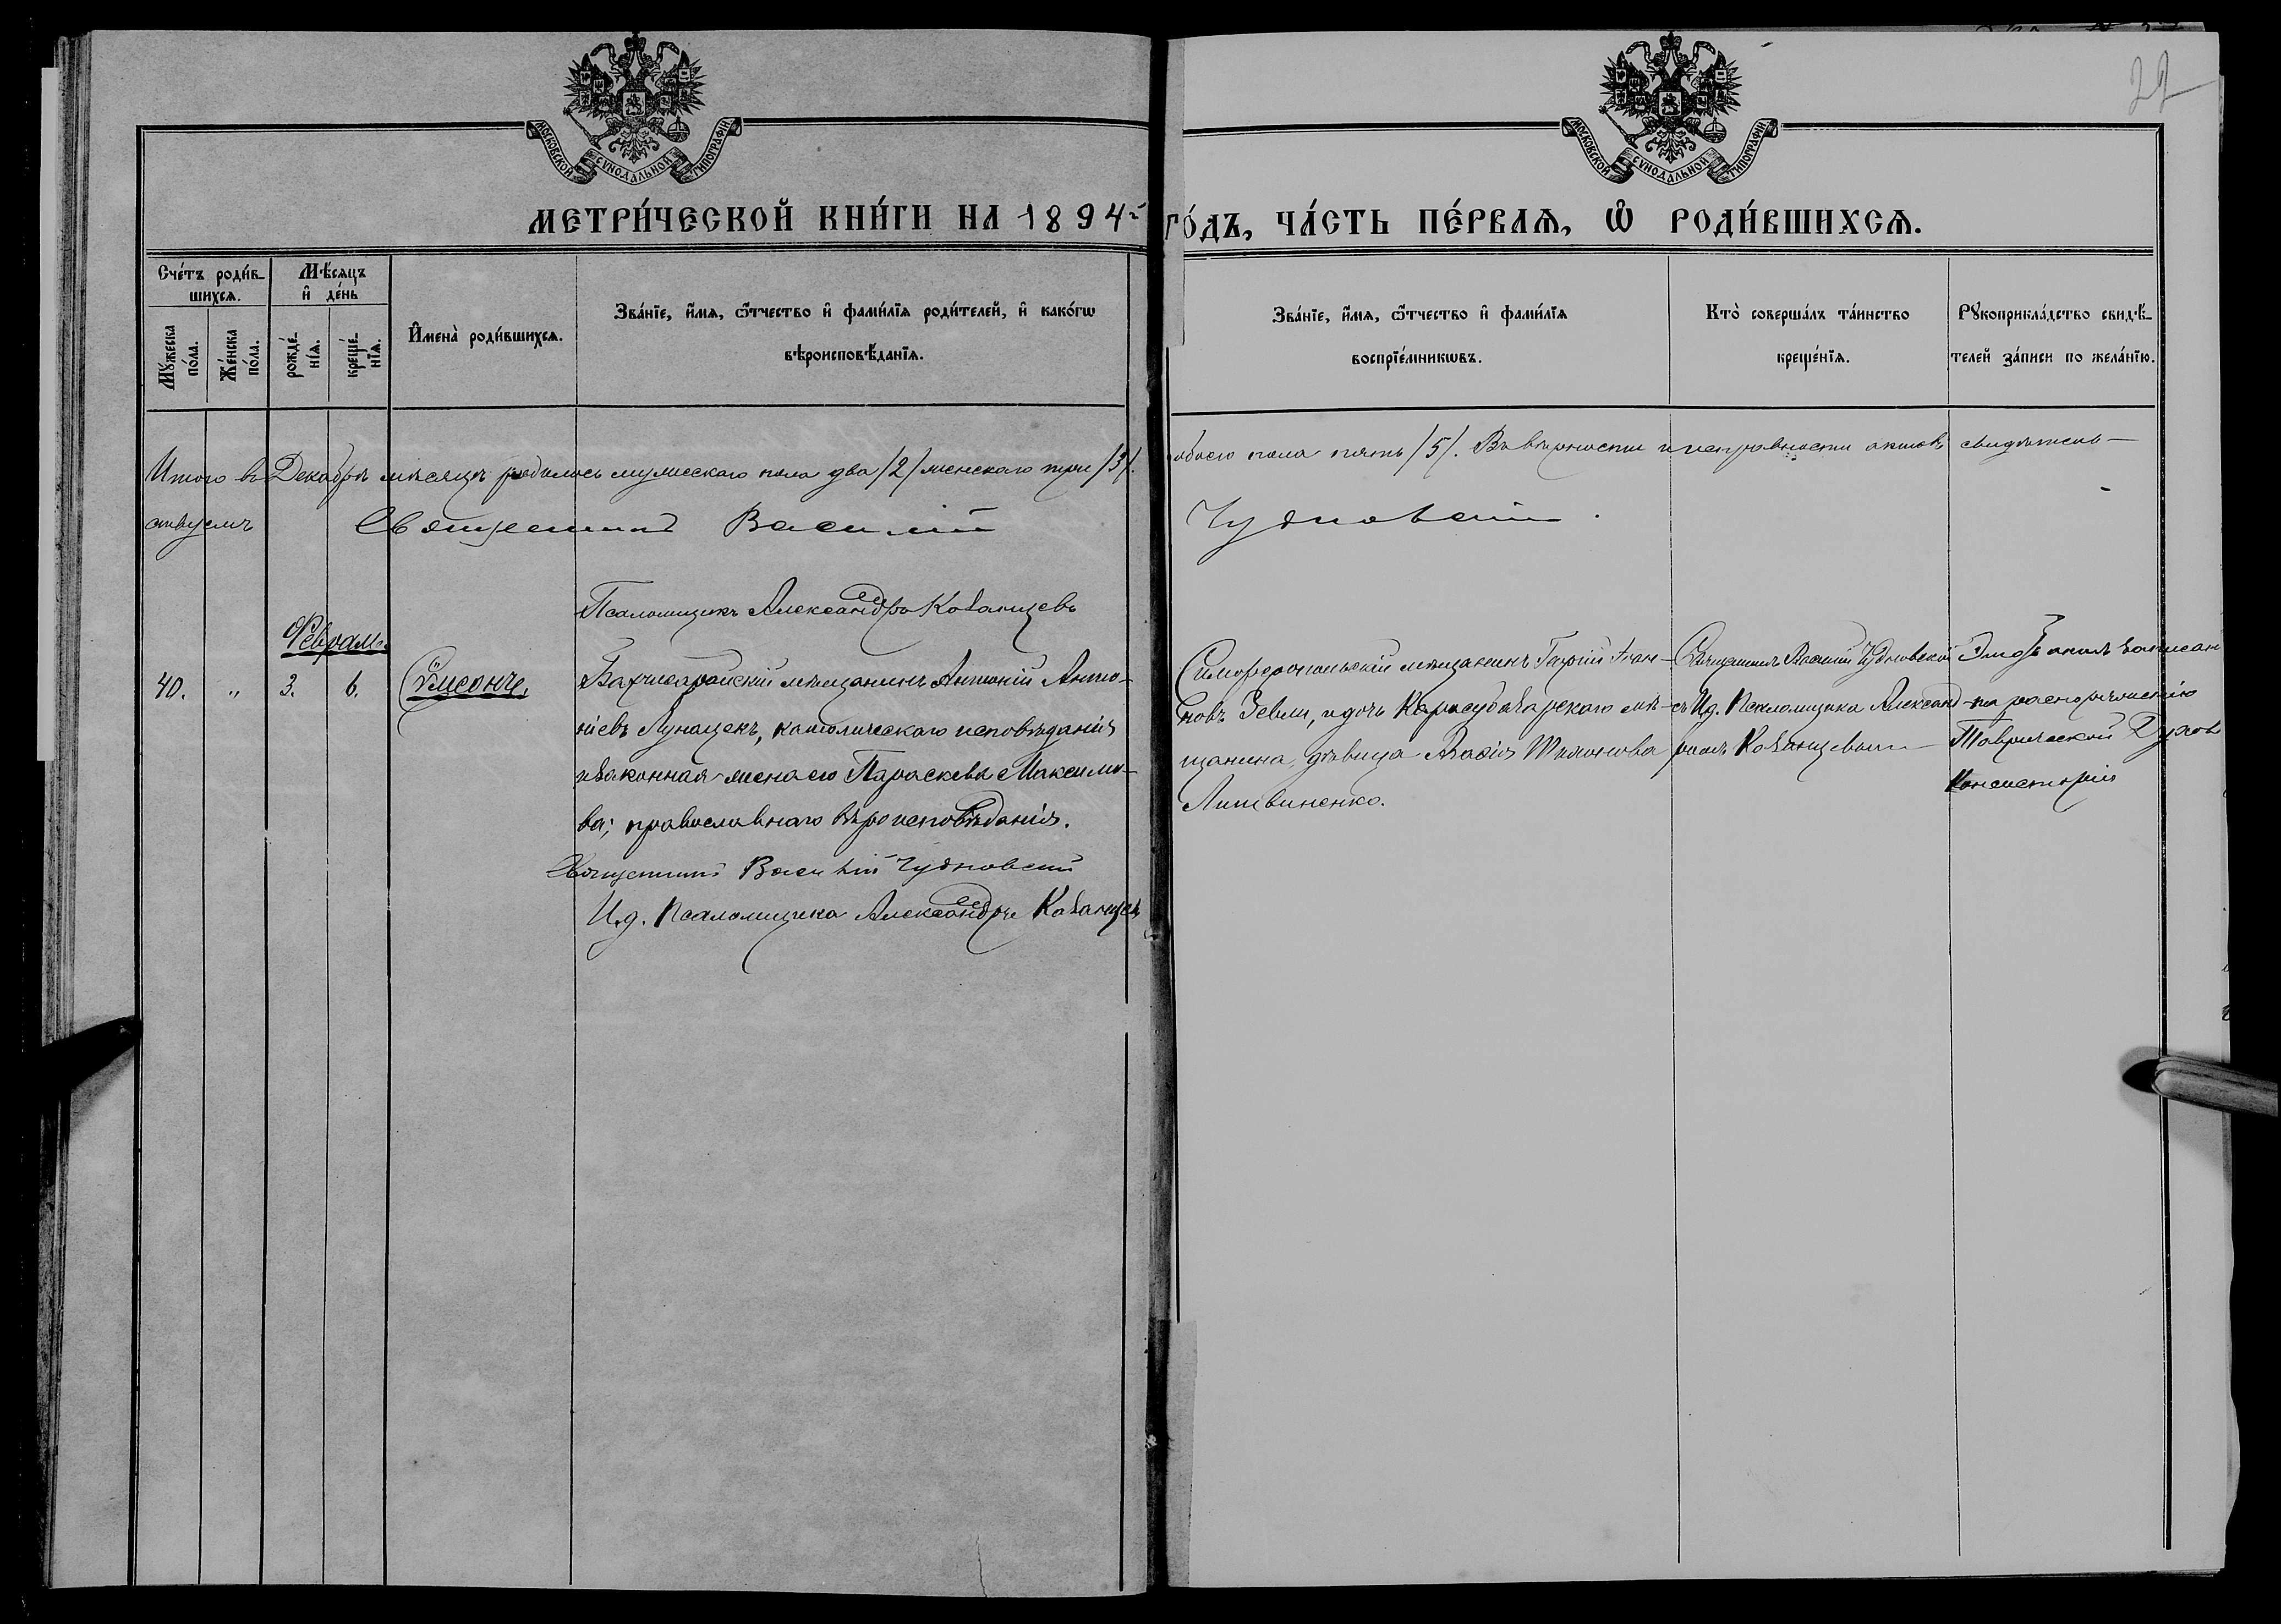 22
МОСКОВСКОЙ СѴНОДАЛЬНОЙ ТИПОГРАФІИ
МОСКОВСКОЙ СѴНОДАЛЬНОЙ ТИПОГРАФІИ
МЕТРИ́ЧЕСКОЙ КНИ́ГИ НА 1894й ГО́ДЪ, ЧА́СТЬ ПЕ́РВАѦ, Ѡ҆ РОДИ́ВШИХСѦ.
Сче́тъ роди́в-
шихсѧ.
Мѣ́сѧцъ
и҆ де́нь
Мꙋ́жеска
по́ла.
Же́нска
по́ла.
рожде́-
нїѧ.
креще́-
нїѧ.
И҆мена̀ роди́вшихсѧ.
Зва́нїе, и҆́мѧ, ѻ҆́тчество и҆ фами́лїѧ роди́телей, и҆ како́гѡ
вѣроисповѣ́данїѧ.
Зва́нїе, и҆́мѧ, ѻ҆́тчество и҆ фами́лїѧ
воспрїе́мникѡвъ.
Кто̀ соверша́лъ та́инство
креще́нїѧ.
Рꙋкоприкла́дство свидѣ́-
телей за́писи по жела́нїю.
Итого въ Декабрѣ мѣсяцѣ родилось мужескаго пола два /2/ женскаго три /3/. обоего пола пять /5/. Въ вѣрности и исправности актовъ свидѣтель-
ствуемъ Священникъ Василій Чудновскій.
Псаломщикъ Александръ Казанцевъ
Февраль.
40. " 3. 6. Сѵмеонъ.
Бахчисарайскій мѣщанинъ Антоній Анто-
ніевъ Лунацекъ, католическаго исповѣданія
и законная жена его Параскева Максимо-
ва; православнаго вѣроисповѣданія.
Священникъ Василій Чудновскій
И.д. Псаломщика Александръ Казанцевъ
Симферопольскій мѣщанинъ Іван-
новъ Зевли, и дочь Карасубазарскаго мѣ-
щанина, дѣвица Литвиненко.
Священникъ Василій Чудновскій
съ И.д. Псаломщика Александ-
ромъ Казанцевымъ
Этотъ актъ записан
по распоряженію
Таврической Духов
Консисторіи